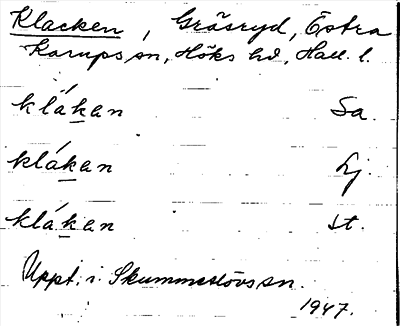 Klacken, Gräsryd, Östra
Karups sn, Höks hd, Hall. l.
klákan Sa.
klákan Lj.
klákan St.
Uppt. i Skummeslövs sn.
1947.